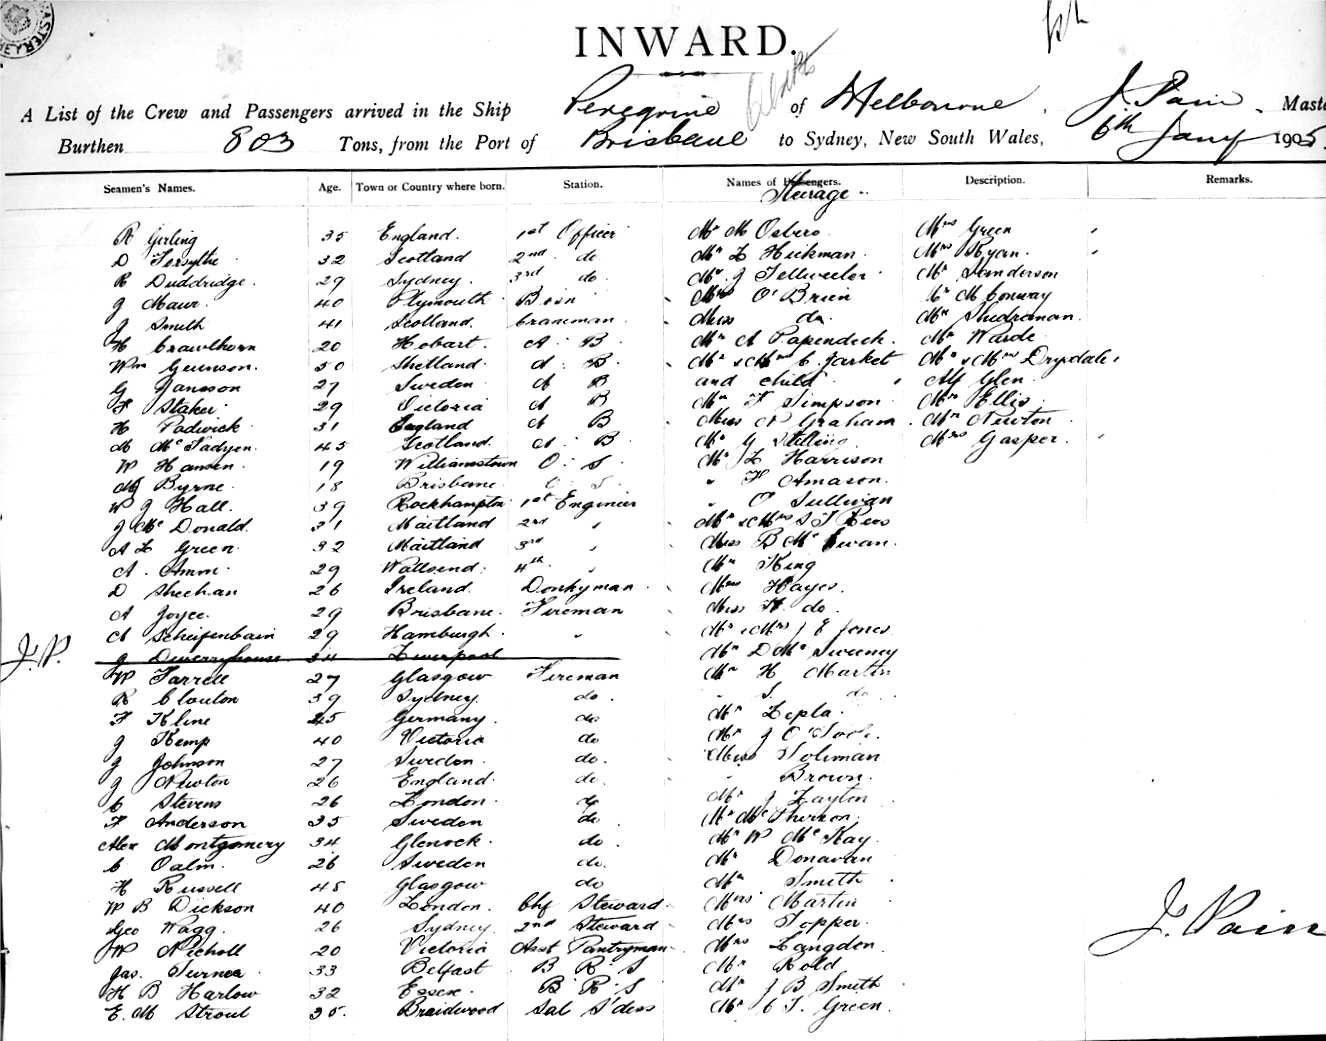 INWARD.
A List of the Crew and Passengers arrived in the Ship Peregrine of Melbourne, J. Pain. Maste
Burthen 803 Tons, from the Port of Brisbane to Sydney, New South Wales, 6th Jany 1905.
Seamen's Names. Age. Town or Country where born. Station. Names of Passengers. Description. Remarks.
Steerage
R Girling 35 England. 1st Officer Mr M Osbero Mrs Green
D Forsythe 32 Scotland 2nd do Mr L Hickman. Mrs Ryan.
R Duddridge. 29 Sydney. 3rd do. Mr J Fellweeler Mr Sanderson
J Maur 40 Plymouth Bosn Mrs O'Brien M Conway
J Smith 41 Scotland. Craneman Miss do. Mr Shedraman.
H Crawthorn 20 Hobart. A. B. Mr A Papendeck. Mr Warde
Wm Gunnson. 50 Shetland A. B. Mr & Mrs C. Jarket Mr & Mrs Drysdale
G Jansson 27 Sweden A B and child Alf Glen.
F Staker 29 Victoria A B Mr F Simpson. Mrs Ellis.
H Padwick. 31 England A B Miss N Graham. Mr Newton
M McFadyen. 45 Scotland. A. B. Mr G Stelling Mrs Gasper.
W Hansen. 19 Williamstown O. S. Mr L Harrison
M Byrne. 18 Brisbane O. S. " F Amason.
W J Hall. 39 Rockhampton 1st Engineer " O Sullivan
J McDonald. 31 Maitland 2nd " Mr & Mrs S T Rees
A L Green. 32 Maitland 3rd " Miss B McEwan.
A. Amm. 29 Wallsend. 4th " Mr King
D Sheehan 26 Ireland. Donkyman Mrs Hayes.
A Joyce. 29 Brisbane. Fireman Miss H do.
A Scheifenbain 29 Hamburgh. " Mr & Mrs J E Jones
J. P. J Dewerryhouse 34 Liverpool Mr D McSweeney
W Farrell 27 Glasgow Fireman Mr H Martin
R Clouton 39 Sydney do. " S. do
F Kline 45 Germany. do Mr Lepla.
J Kemp 40 Victoria do Mr J O'Toole.
J Johnson 27 Sweden. do. Miss Soliman
J Newton 26 England. do. " Brown.
C Stevens 26 London. do Mr J Layton
F Anderson 35 Sweden do Mr McPherson.
Alex Montgomery 34 Glenock. do. Mr W McKay.
C Oalm. 26 Sweden do. Mr Donavan
H Russell 45 Glasgow do Mr Smith
W B Dickson 40 London. Chf Steward Mrs Martin
Geo Wagg. 26 Sydney 2nd Steward Mrs Topper. J. Pain
W Nicholl 20 Victoria Asst Pantryman Mrs Langdon.
Jas. Turner 33 Belfast B R S Mr Rold
H B Harlow 32 Essex. B. R. S Mr J B Smith
E. M Stroul 35. Braidwood Sal S'dess Mr C T. Green.